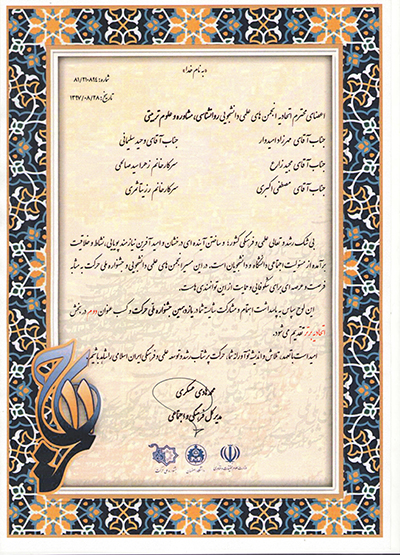 «به نام خدا»
شماره: ۸۱/۲۱۰۸۲۴
تاریخ: ۱۳۹۷/۰۸/۲۸
اعضای محترم اتحادیه انجمن های علمی دانشجویی روانشناسی، مشاوره و علوم تربیتی
جناب آقای مهرزاد امیدوار
جناب آقای وحید سلیمانی
جناب آقای مجید زارع
سرکار خانم زهرا امید صالحی
جناب آقای مصطفی اکبری
سرکار خانم
بی شک رشد و تعالی علمی و فرهنگی کشور و ساختن آینده ای درخشان و امید آفرین نیازمند پویایی، نشاط و خلاقیت
برآمده از مسئولیت اجتماعی دانشگاه و دانشجویان است. در این مسیر انجمن های علمی دانشجویی و جشنواره ملی حرکت به مثابه
فرصت و عرصه ای برای شکوفایی و حمایت از این توانمندی هاست.
این لوح سپاس به پاسداشت اهتمام و مشارکت شایسته شما در یازدهمین جشنواره ملی حرکت و کسب عنوان دوم در بخش
اتحادیه برتر تقدیم می شود.
امید است با تعهد، تلاش و اندیشه نوآورانه شما، حرکت پرشتاب رشد و توسعه علمی و فرهنگی ایران اسلامی را شاهد باشیم.
محمدهادی عسکری
مدیر کل فرهنگی و اجتماعی